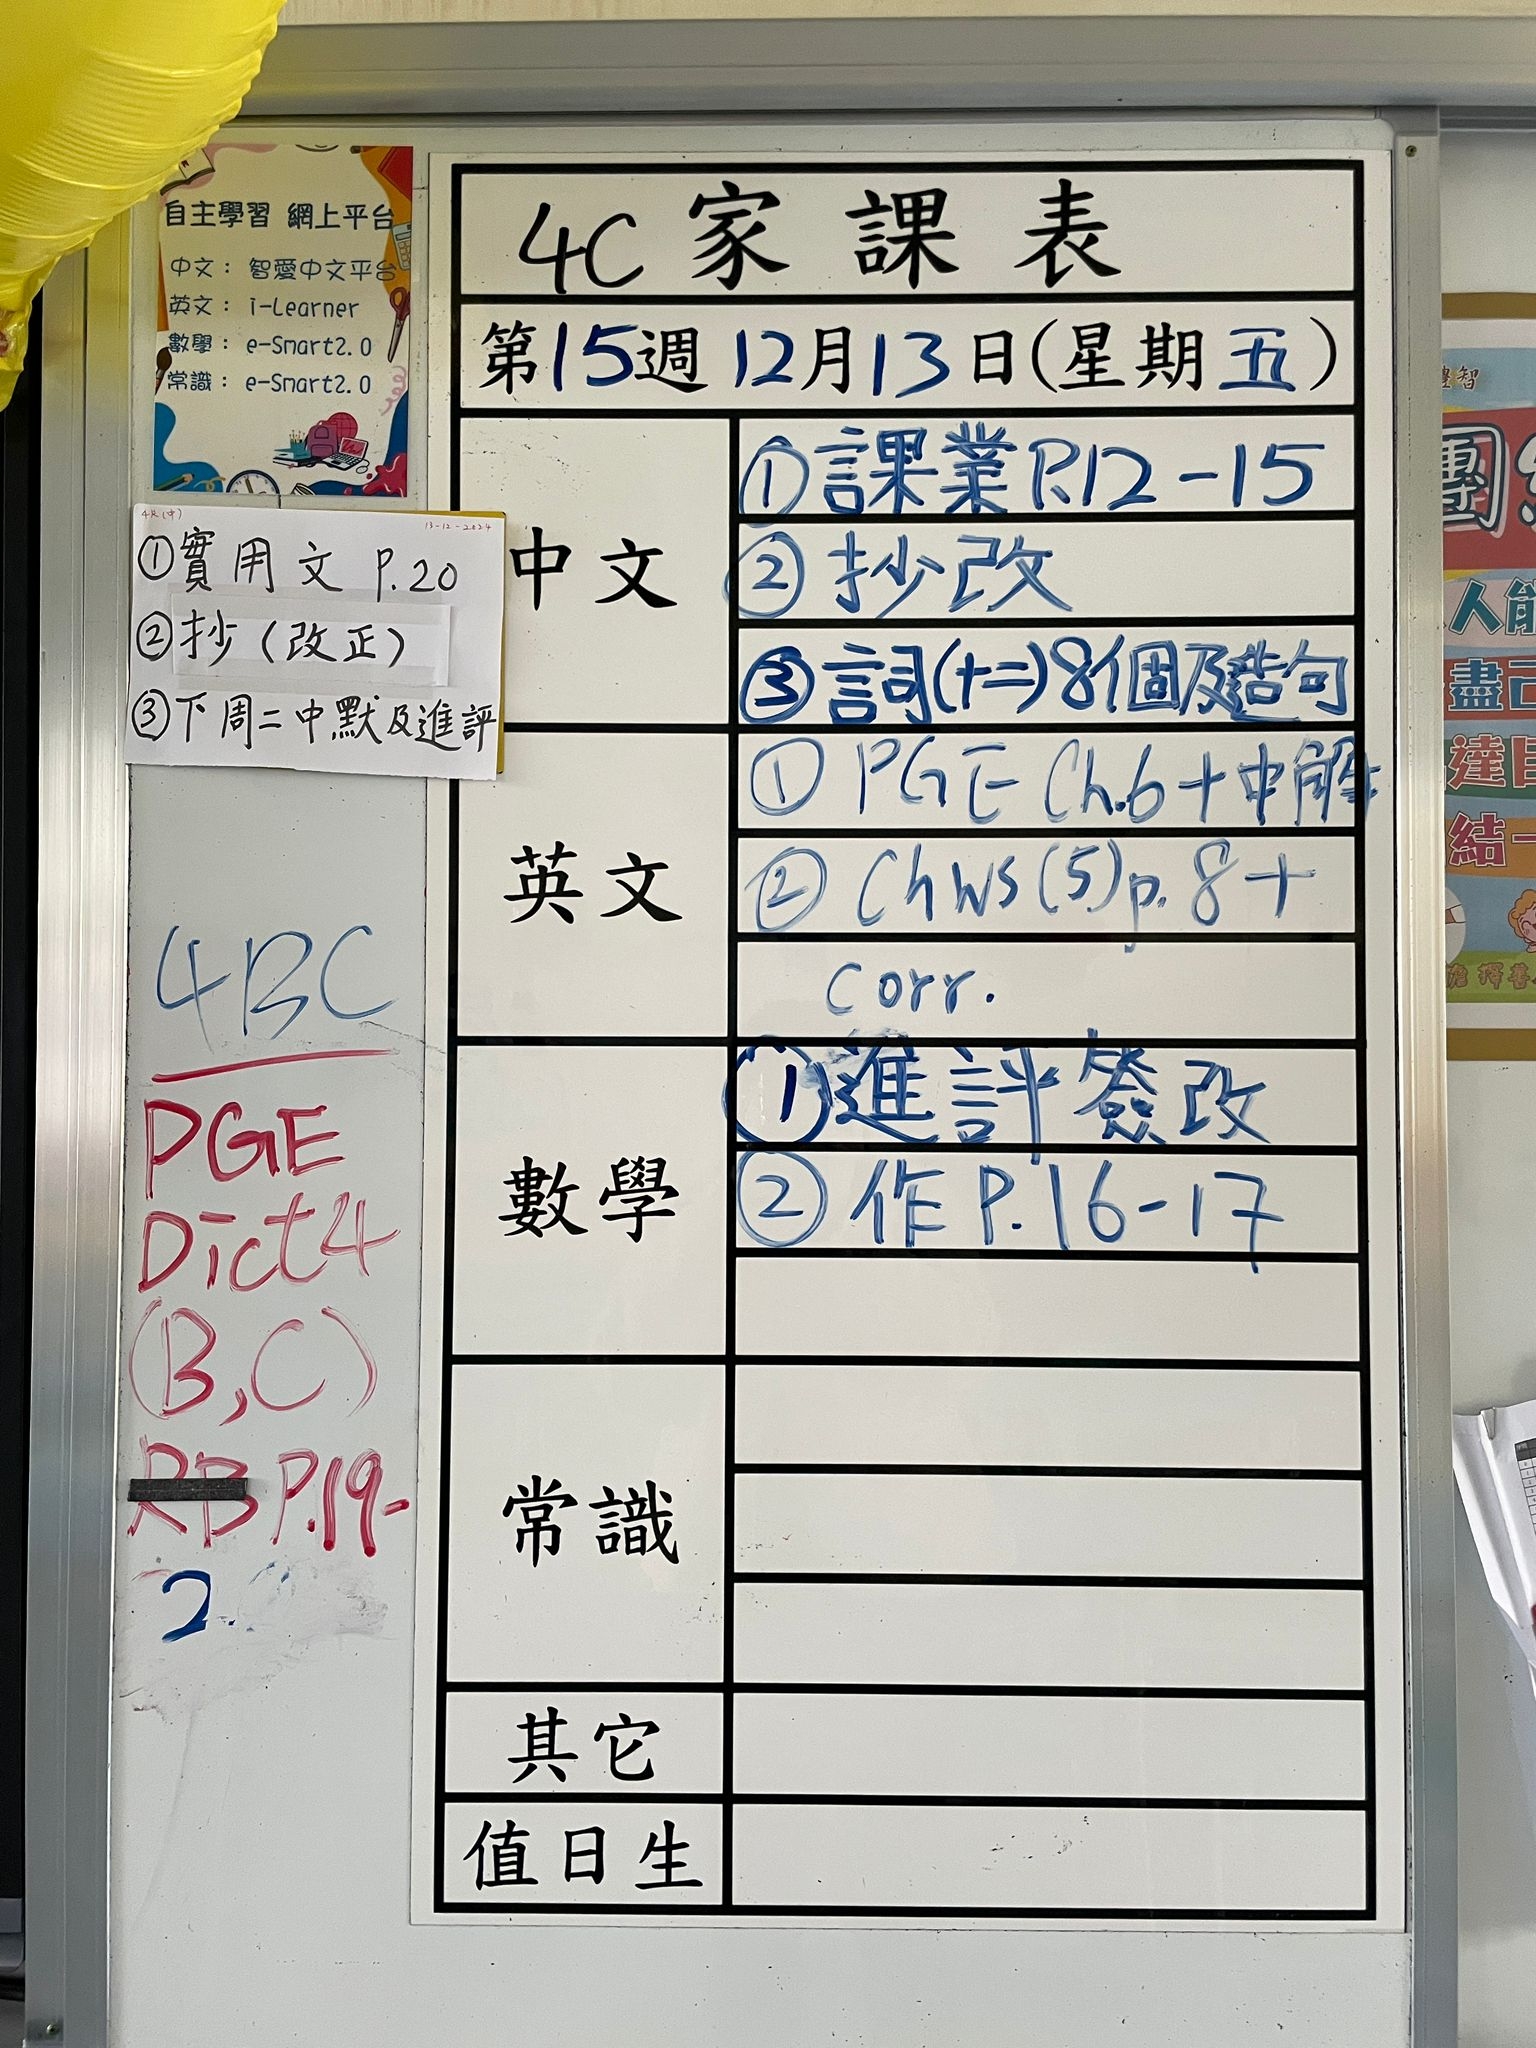 自主學習 網上平台
中文： 智愛中文平台
英文： i-Learner
數學： e-Smart2.0
常識： e-Smart2.0
4C 家課表
第15週12月13日(星期五)
中文
①課業P.12-15
②抄改
③詞(十二)8個及造句
英文
① PGE Ch.6+中解
② ChWS(5)p.8+
corr.
數學
①進評簽改
②作P.16-17
常識
其它
值日生
13-12-2024
①實用文 P.20
②抄(改正)
③下周二中默及進評
4BC
PGE
Dict4
(B,C)
RB P.19-
2
智
團
人能
盡己
達目
結一